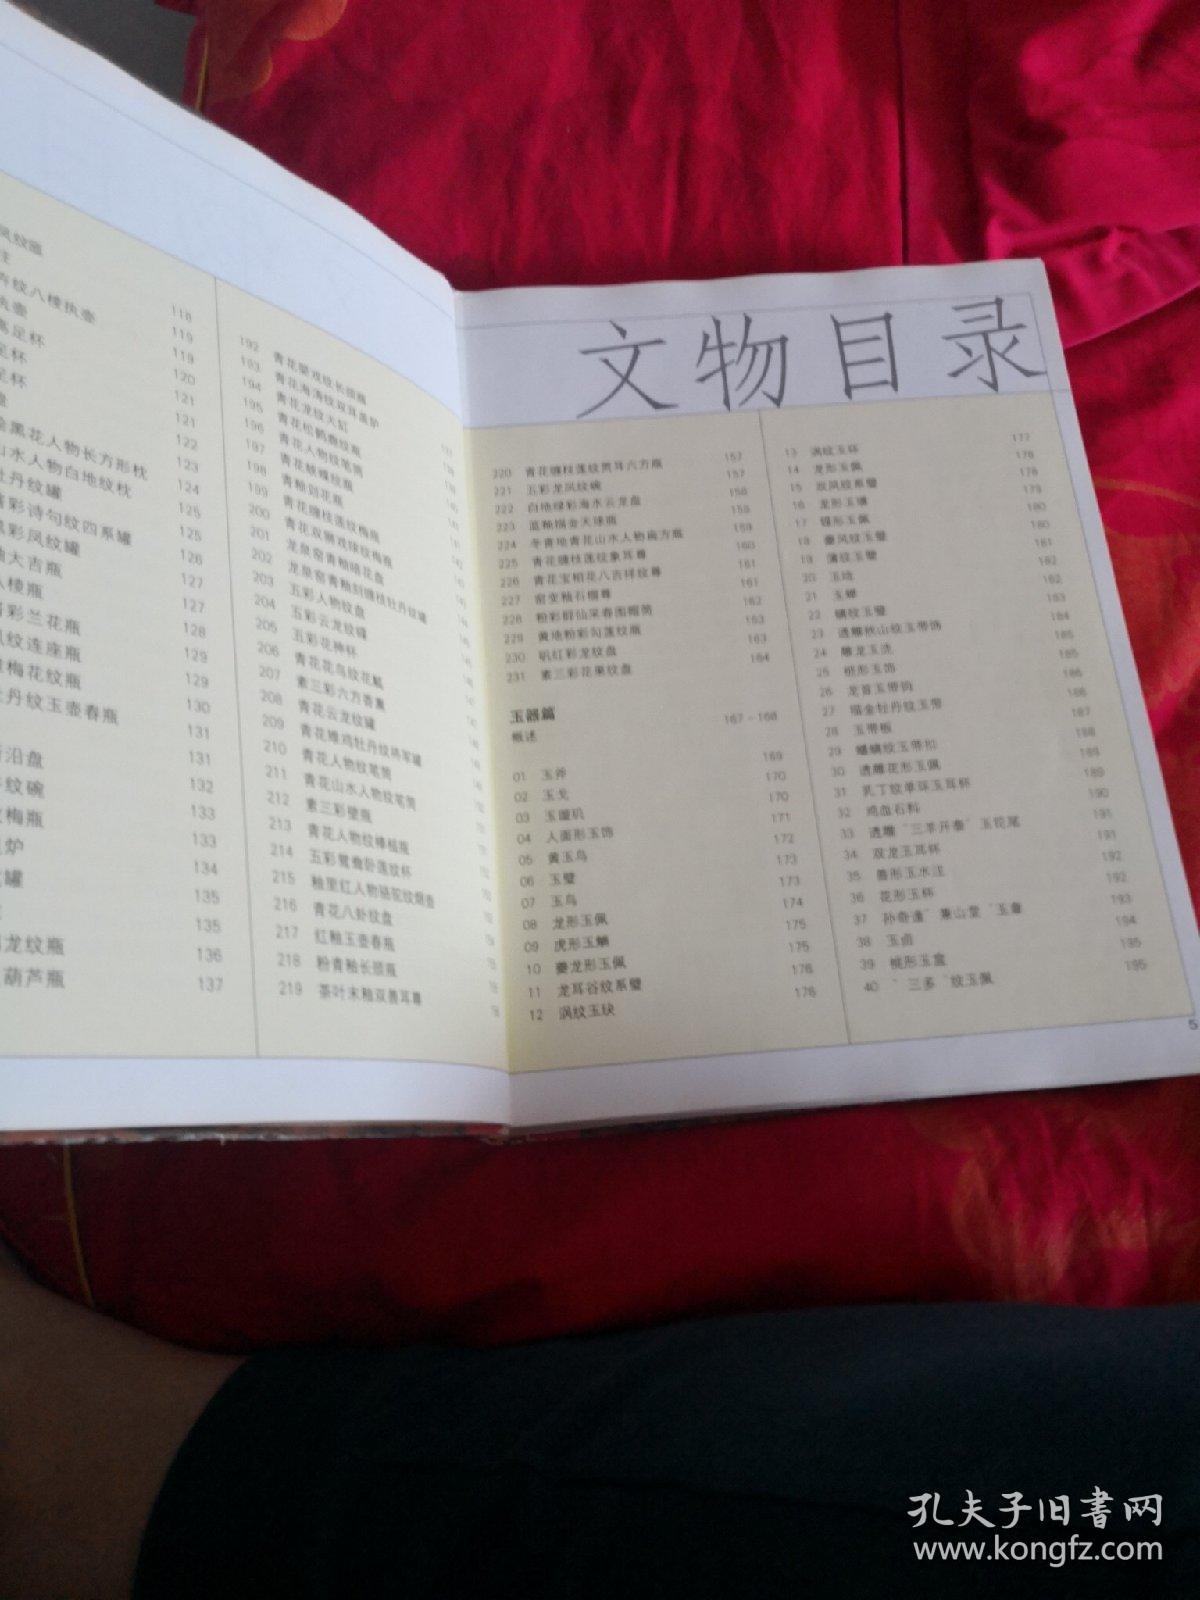 凤纹匜
注
卉纹八棱执壶
执壶
高足杯
足杯
足杯
绘黑花人物长方形枕
山水人物白地纹枕
牡丹纹罐
彩诗句纹四系罐
黑彩凤纹罐
釉大吉瓶
八棱瓶
彩兰花瓶
纹连座瓶
梅花纹瓶
牡丹纹玉壶春瓶
折沿盘
纹碗
纹梅瓶
炉
罐
龙纹瓶
葫芦瓶
118
119
119
120
121
121
122
123
124
125
125
126
127
127
128
129
129
130
131
132
133
133
134
135
135
136
137
192 青花婴戏纹长颈瓶
193 青花海涛纹双耳盖炉
194 青花龙纹大缸
195 青花松鹤鹿纹瓶
196 青花人物纹笔筒
197 青花蝶纹瓶
198 青釉刻花瓶
199 青花缠枝莲纹梅瓶
200 青花双狮戏球纹梅瓶
201 龙泉窑青釉暗花盘
202 龙泉窑青釉刻缠枝牡丹纹罐
203 五彩人物纹盘
204 五彩云龙纹碟
205 五彩花神杯
206 青花花鸟纹花觚
207 素三彩六方香薰
208 青花云龙纹罐
209 青花雉鸡牡丹纹将军罐
210 青花人物纹笔筒
211 青花山水人物纹笔筒
212 素三彩壁瓶
213 青花人物纹棒槌瓶
214 五彩鸳鸯卧莲纹杯
215 釉里红人物骆驼纹烟壶
216 青花八卦纹盘
217 红釉玉壶春瓶
218 粉青釉长颈瓶
219 茶叶末釉双兽耳尊
文物目录
220 青花缠枝莲纹贯耳六方瓶 157
221 五彩龙凤纹碗 157
222 白地绿彩海水云龙盘 158
223 蓝釉描金天球瓶 158
224 冬青地青花山水人物扁方瓶 159
225 青花缠枝莲纹象耳尊 160
226 青花宝相花八吉祥纹尊 161
227 窑变釉石榴尊 161
228 粉彩群仙采春图帽筒 162
229 黄地粉彩勾莲纹瓶 163
230 矾红彩龙纹盘 163
231 素三彩花果纹盘 164
玉器篇
概述 167-168
01 玉斧 169
02 玉戈 170
03 玉璇玑 170
04 人面形玉饰 171
05 黄玉鸟 172
06 玉璧 173
07 玉鸟 173
08 龙形玉佩 174
09 虎形玉觿 175
10 夔龙形玉佩 175
11 龙耳谷纹系璧 176
12 涡纹玉玦 176
13 涡纹玉环 177
14 龙形玉佩 178
15 双凤纹系璧 178
16 龙形玉璜 179
17 蝶形玉佩 180
18 夔凤纹玉璧 180
19 蒲纹玉璧 181
20 玉琀 182
21 玉蝉 182
22 螭纹玉璧 183
23 透雕秋山纹玉带饰 184
24 雕龙玉洗 185
25 桃形玉饰 185
26 龙首玉带钩 186
27 描金牡丹纹玉带 186
28 玉带板 187
29 蟠螭纹玉带扣 188
30 透雕花形玉佩 189
31 乳丁纹单环玉耳杯 189
32 鸡血石料 190
33 透雕“三羊开泰”玉花尾 191
34 双龙玉耳杯 191
35 兽形玉水注 192
36 花形玉杯 192
37 孙奇逢“兼山堂”玉章 193
38 玉卣 194
39 桃形玉盒 195
40 “三多”纹玉佩 195
5
孔夫子旧书网
www.kongfz.com